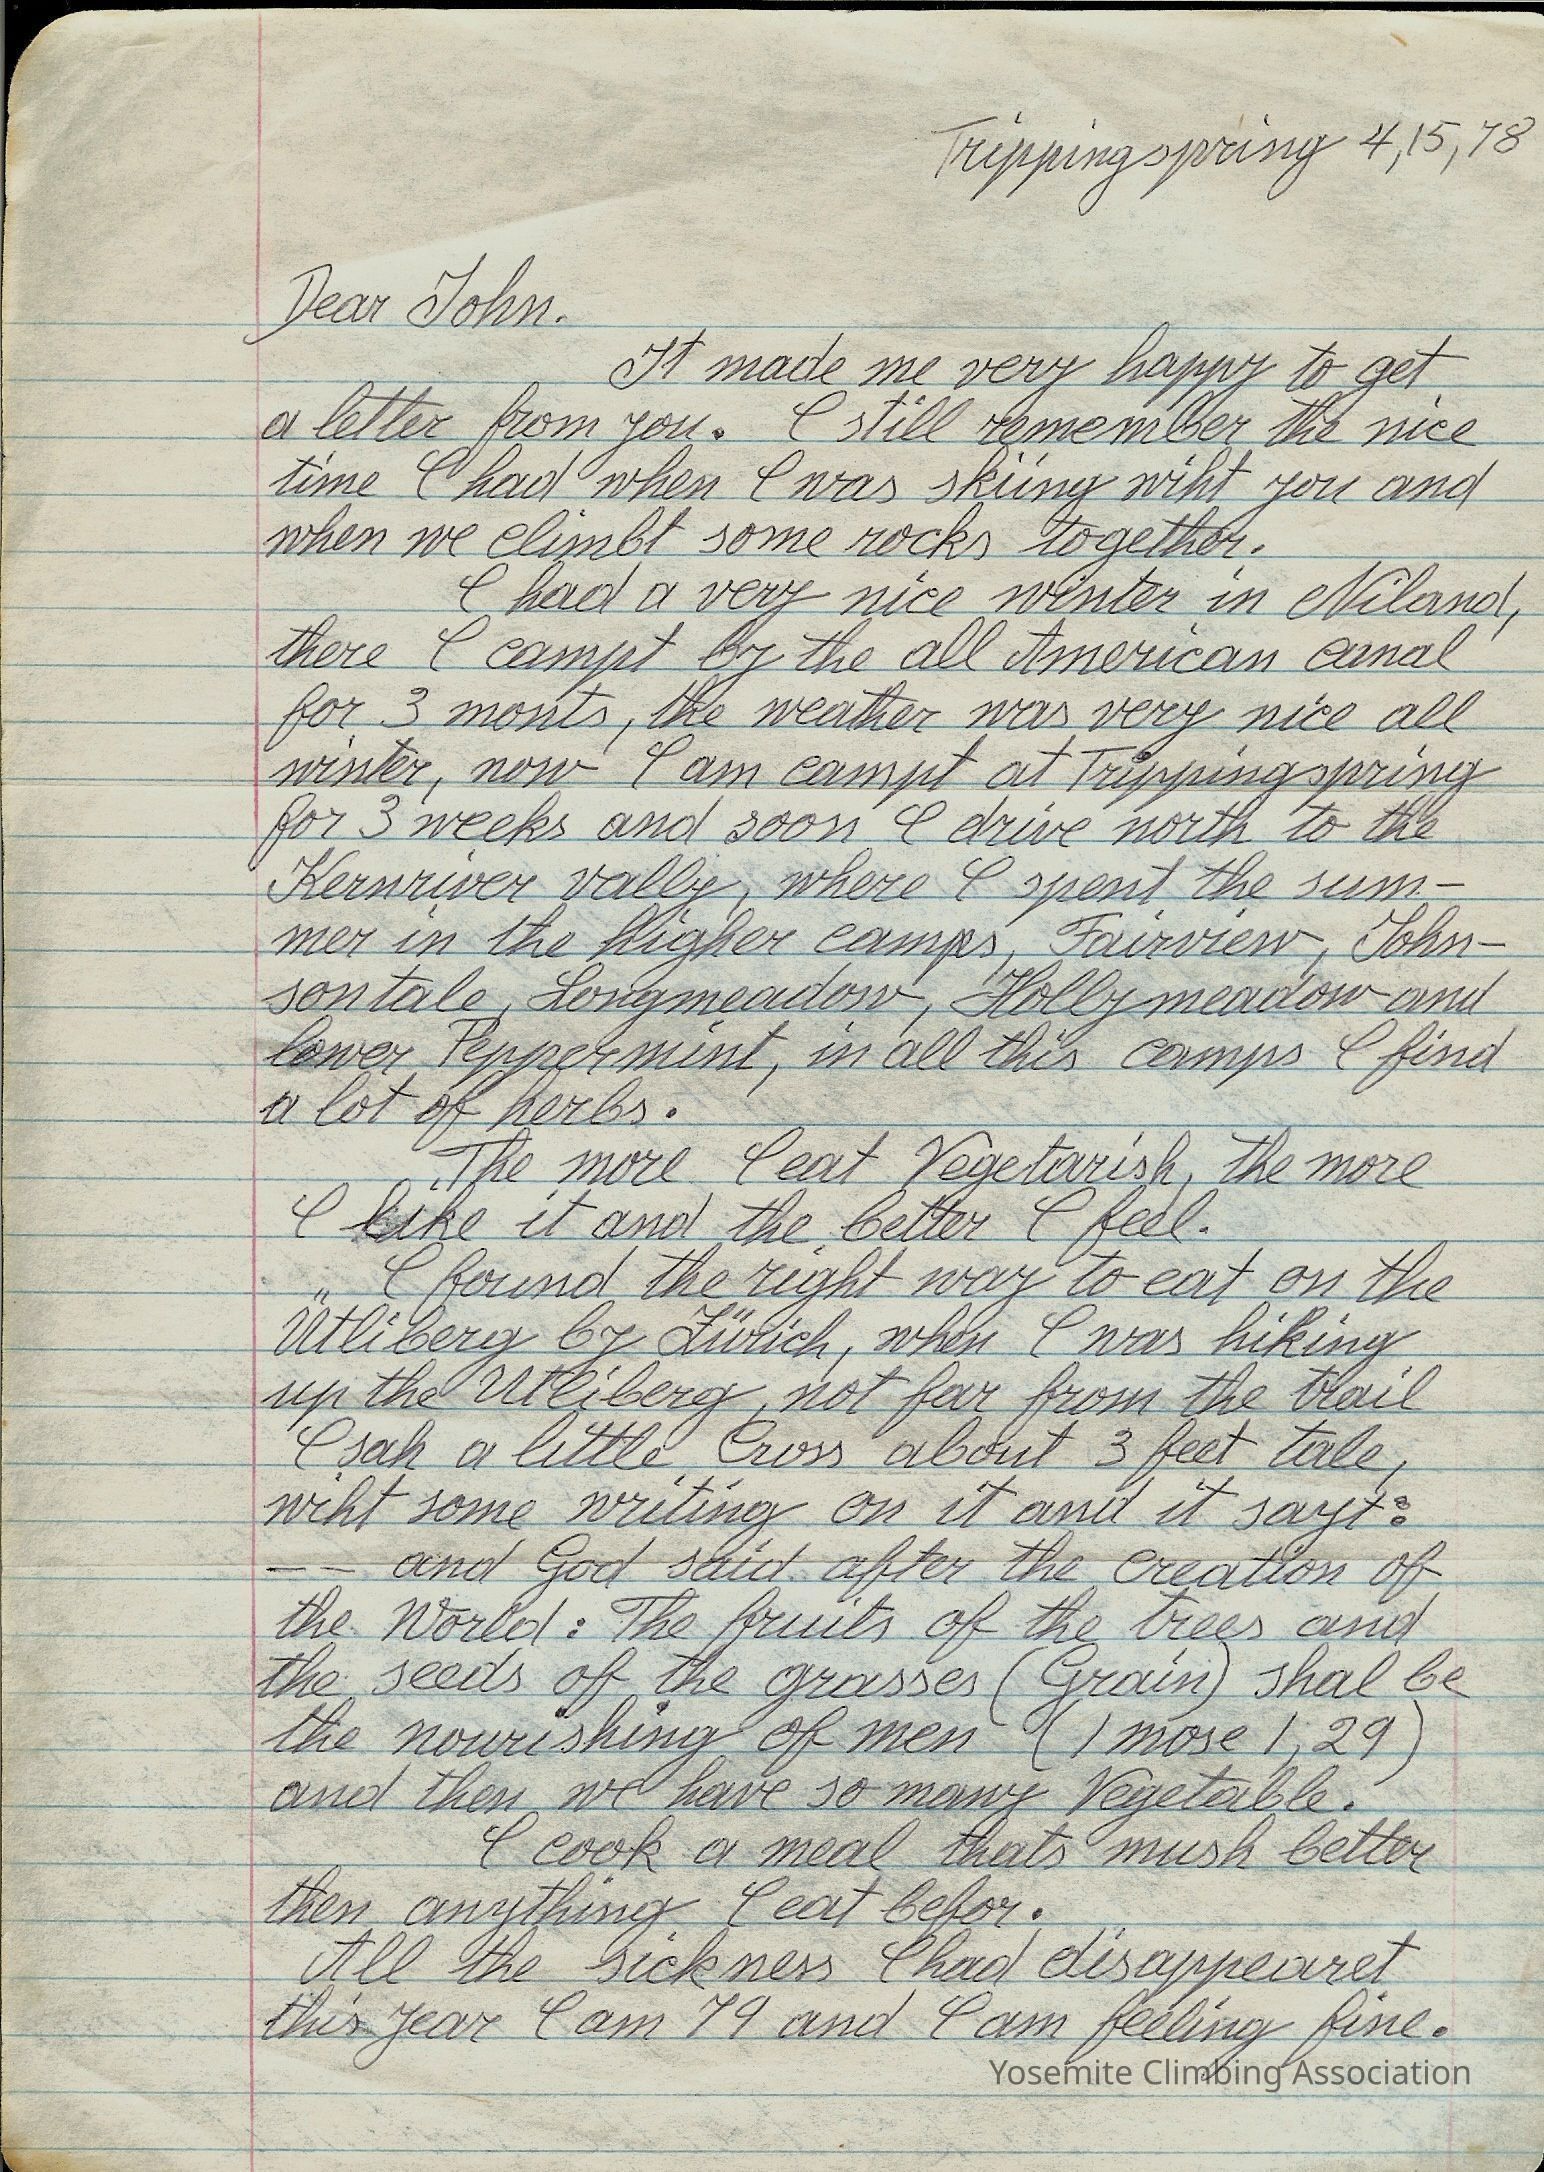 Trippingspring 4,15,78
Dear John.
It made me very happy to get
a letter from you. I still remember the nice
time I had when I was skiing wiht you and
when we climbt some rocks together.
I had a very nice winter in Niland,
there I campt by the all American canal
for 3 monts, the weather was very nice all
winter, now I am campt at Trippingspring
for 3 weeks and soon I drive north to the
Kernriver vally, where I spent the sum-
mer in the higher camps, Fairview, John-
sontale, Longmeadow, Hollymeadow and
lower Peppermint, in all this camps I find
a lot of herbs.
The more I eat Vegetarish, the more
I like it and the better I feel.
I found the right way to eat on the
Ütliberg by Zürich, when I was hiking
up the Utliberg, not far from the trail
I sah a little Cross about 3 feet tale,
wiht some writing on it and it sayt:
-- and God said after the creation of
the World: The fruits of the trees and
the seeds of the grasses (Grain) shal be
the nourishing of men (1 mose 1,29)
and then we have so many Vegetable.
I cook a meal thats mush better
then anything I eat befor.
All the sickness I had disappearet
this year I am 79 and I am feeling fine.
Yosemite Climbing Association